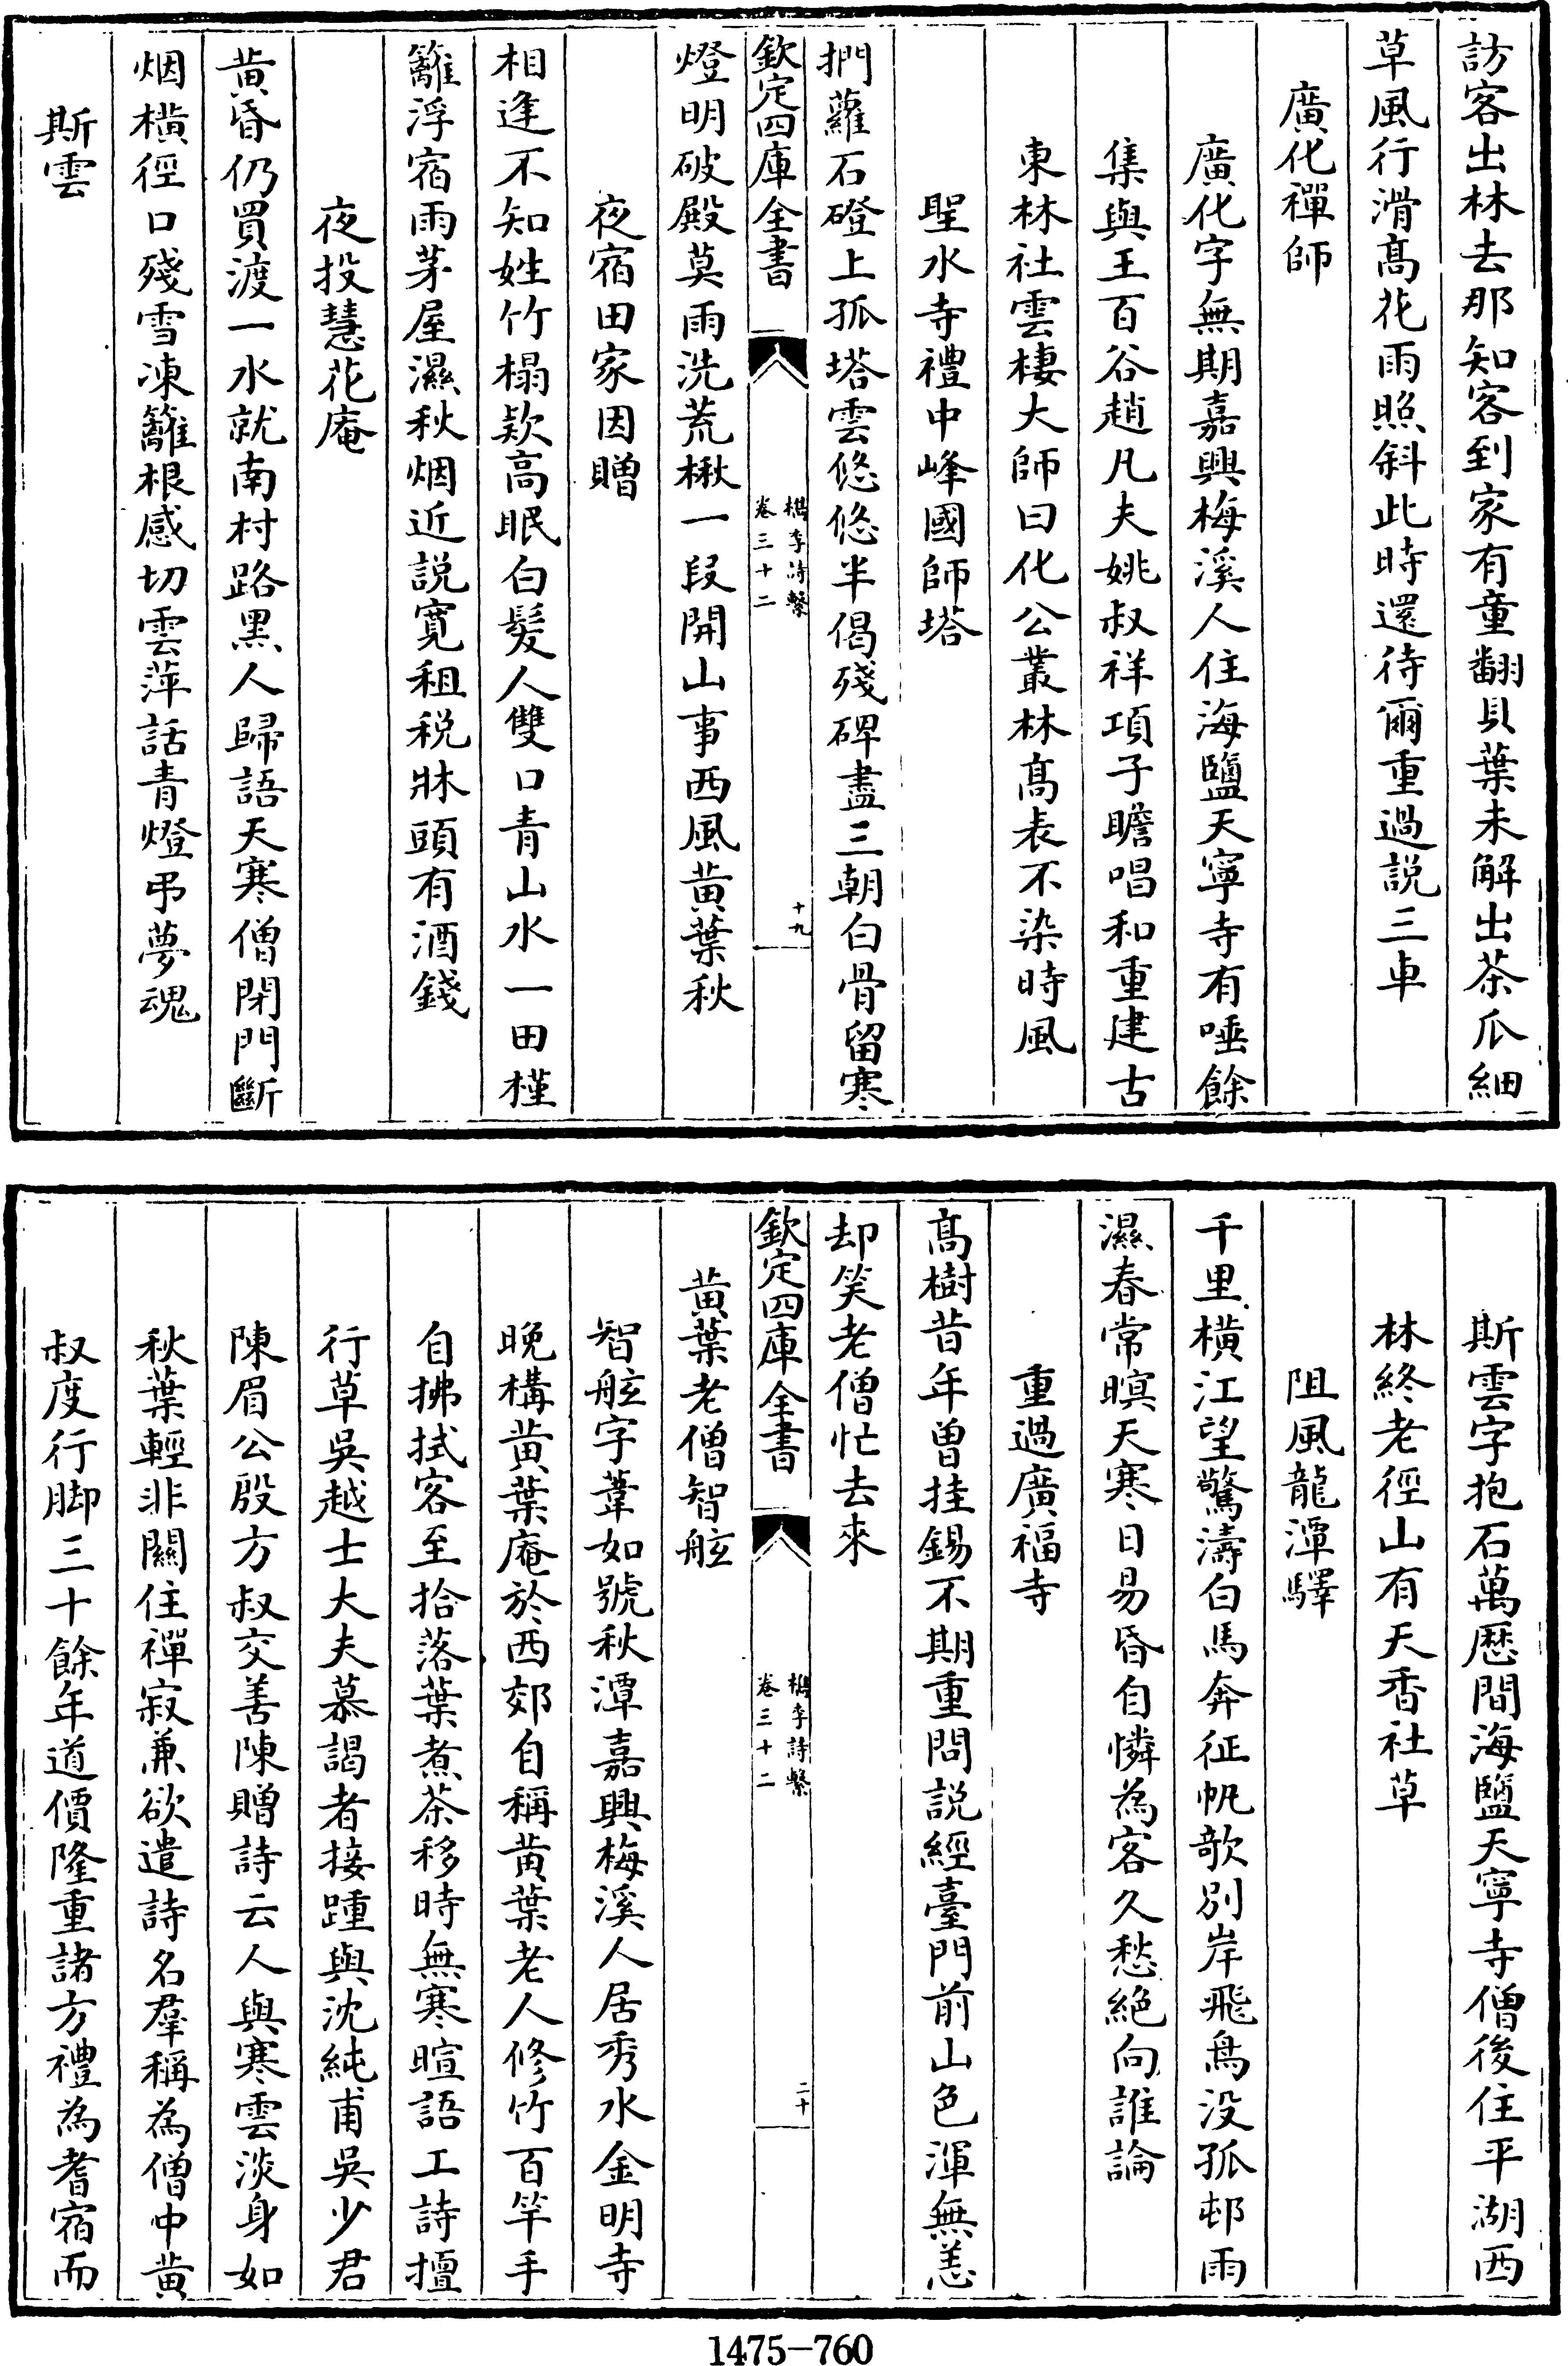 訪客出林去那知客到家有童翻貝葉未解出茶瓜細
草風行滑髙花雨照斜此時還待爾重過説三車
廣化禪師
廣化字無期嘉興梅溪人住海鹽天寧寺有唾餘
集與王百谷趙凡夫姚叔祥項子瞻唱和重建古
東林社雲棲大師曰化公叢林髙表不染時風
聖水寺禮中峰國師塔
捫蘿石磴上孤塔雲悠悠半偈殘碑盡三朝白骨留寒
欽定四庫全書
檇李詩繫
卷三十二
十九
燈明破殿莫雨洗荒楸一段開山事西風黄葉秋
夜宿田家因贈
相逢不知姓竹榻欵高眠白髮人雙口青山水一田槿
籬浮宿雨茅屋濕秋烟近説寛租税牀頭有酒錢
夜投慧花庵
黄昏仍買渡一水就南村路黑人歸語天寒僧閉門斷
烟横徑口殘雪凍籬根感切雲萍話青燈弔夢魂
斯雲
斯雲字抱石萬歴間海鹽天寧寺僧後住平湖西
林終老徑山有天香社草
阻風龍潭驛
千里横江望驚濤白馬奔征帆歌别岸飛鳥没孤邨雨
濕春常暝天寒日易昏自憐為客久愁絶向誰論
重過廣福寺
髙樹昔年曽挂錫不期重問説經臺門前山色渾無恙
却笑老僧忙去來
欽定四庫全書
檇李詩繫
卷三十二
二十
黄葉老僧智舷
智舷字葦如號秋潭嘉興梅溪人居秀水金明寺
晚構黄葉庵於西郊自稱黄葉老人修竹百竿手
自拂拭客至拾落葉煮茶移時無寒暄語工詩擅
行草吳越士大夫慕謁者接踵與沈純甫吳少君
陳眉公殷方叔交善陳贈詩云人與寒雲淡身如
秋葉輕非闗住禪寂兼欲遣詩名羣稱為僧中黄
叔度行脚三十餘年道價隆重諸方禮為耆宿而
1475-760